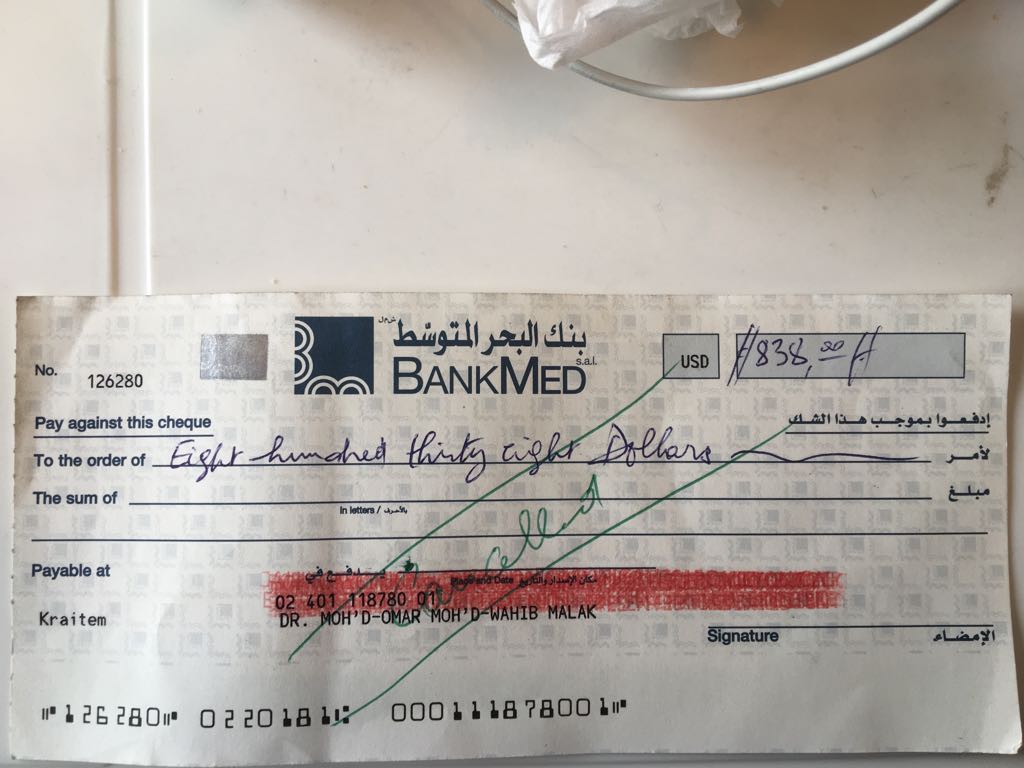 بنك البحر المتوسّط ش.م.ل
BANKMED s.a.l.
No. 126280
USD
//838,00 //
Pay against this cheque إدفعوا بموجب هذا الشك
To the order of Eight hundred thirty eight Dollars لأمر
The sum of مبلغ
In letters / بالأحرف
Cancelled
Payable at يدفع في
Place and Date مكان الإصدار والتاريخ
02 401 118780 01
Kraitem DR. MOH'D-OMAR MOH'D-WAHIB MALAK
Signature الإمضاء
⑈126280⑈ 0220181⑆ 000111878001⑈